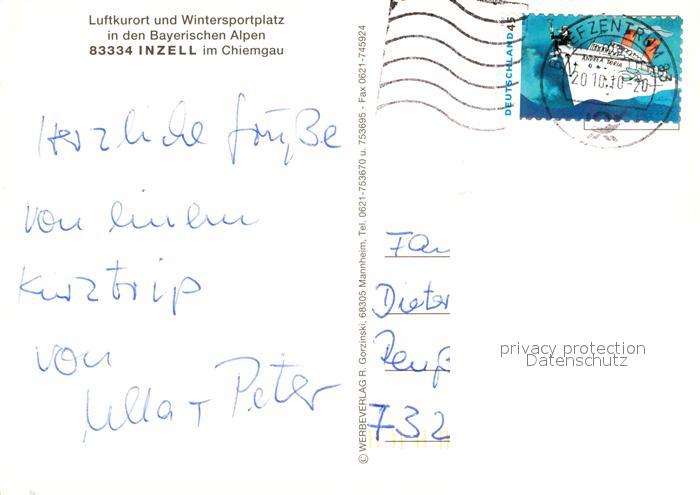 Luftkurort und Wintersportplatz
in den Bayerischen Alpen
83334 INZELL im Chiemgau
Herzliche Grüße
von einem
Kurztrip
von
Ulla + Peter
© WERBEVERLAG R. Gorzinski, 68305 Mannheim, Tel. 0621-753670 u. 753695 - Fax 0621-745924
DEUTSCHLAND 45
BRIEFZENTRUM
20.10.10-20
Fam
Dieter
732
privacy protection
Datenschutz